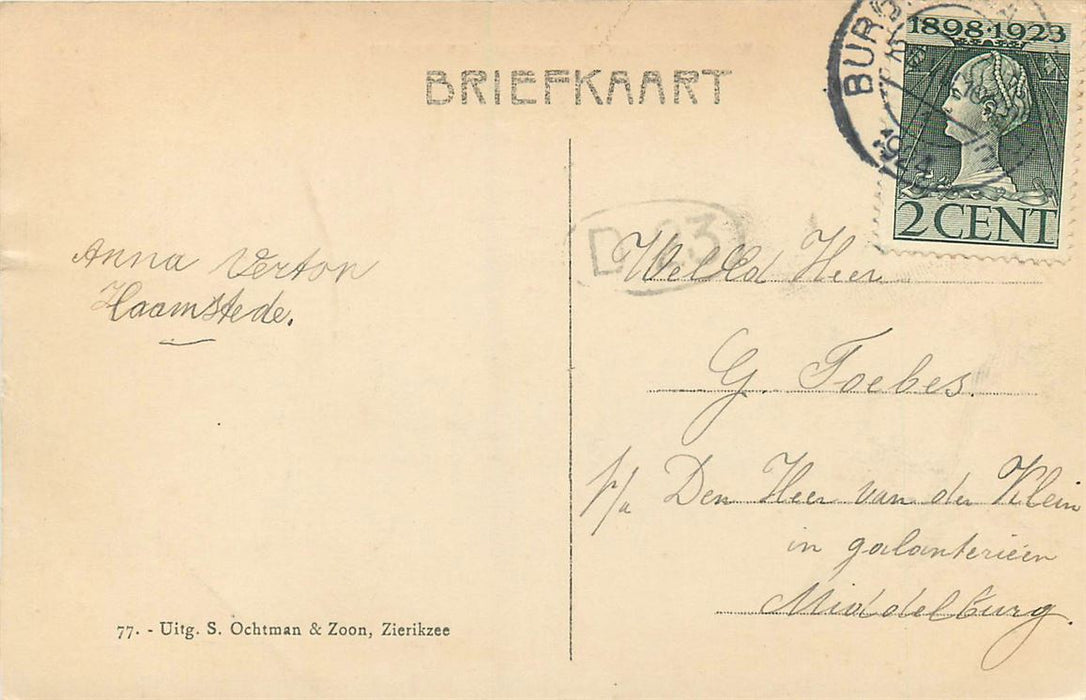 BRIEFKAART
1898·1923
2 CENT
BURG
1924
D 23
Anna Verton
Haamstede.
WelEd Heer
G. Foebes.
p/a Den Heer van der Klein
in galanterieën
Middelburg.
77. - Uitg. S. Ochtman & Zoon, Zierikzee